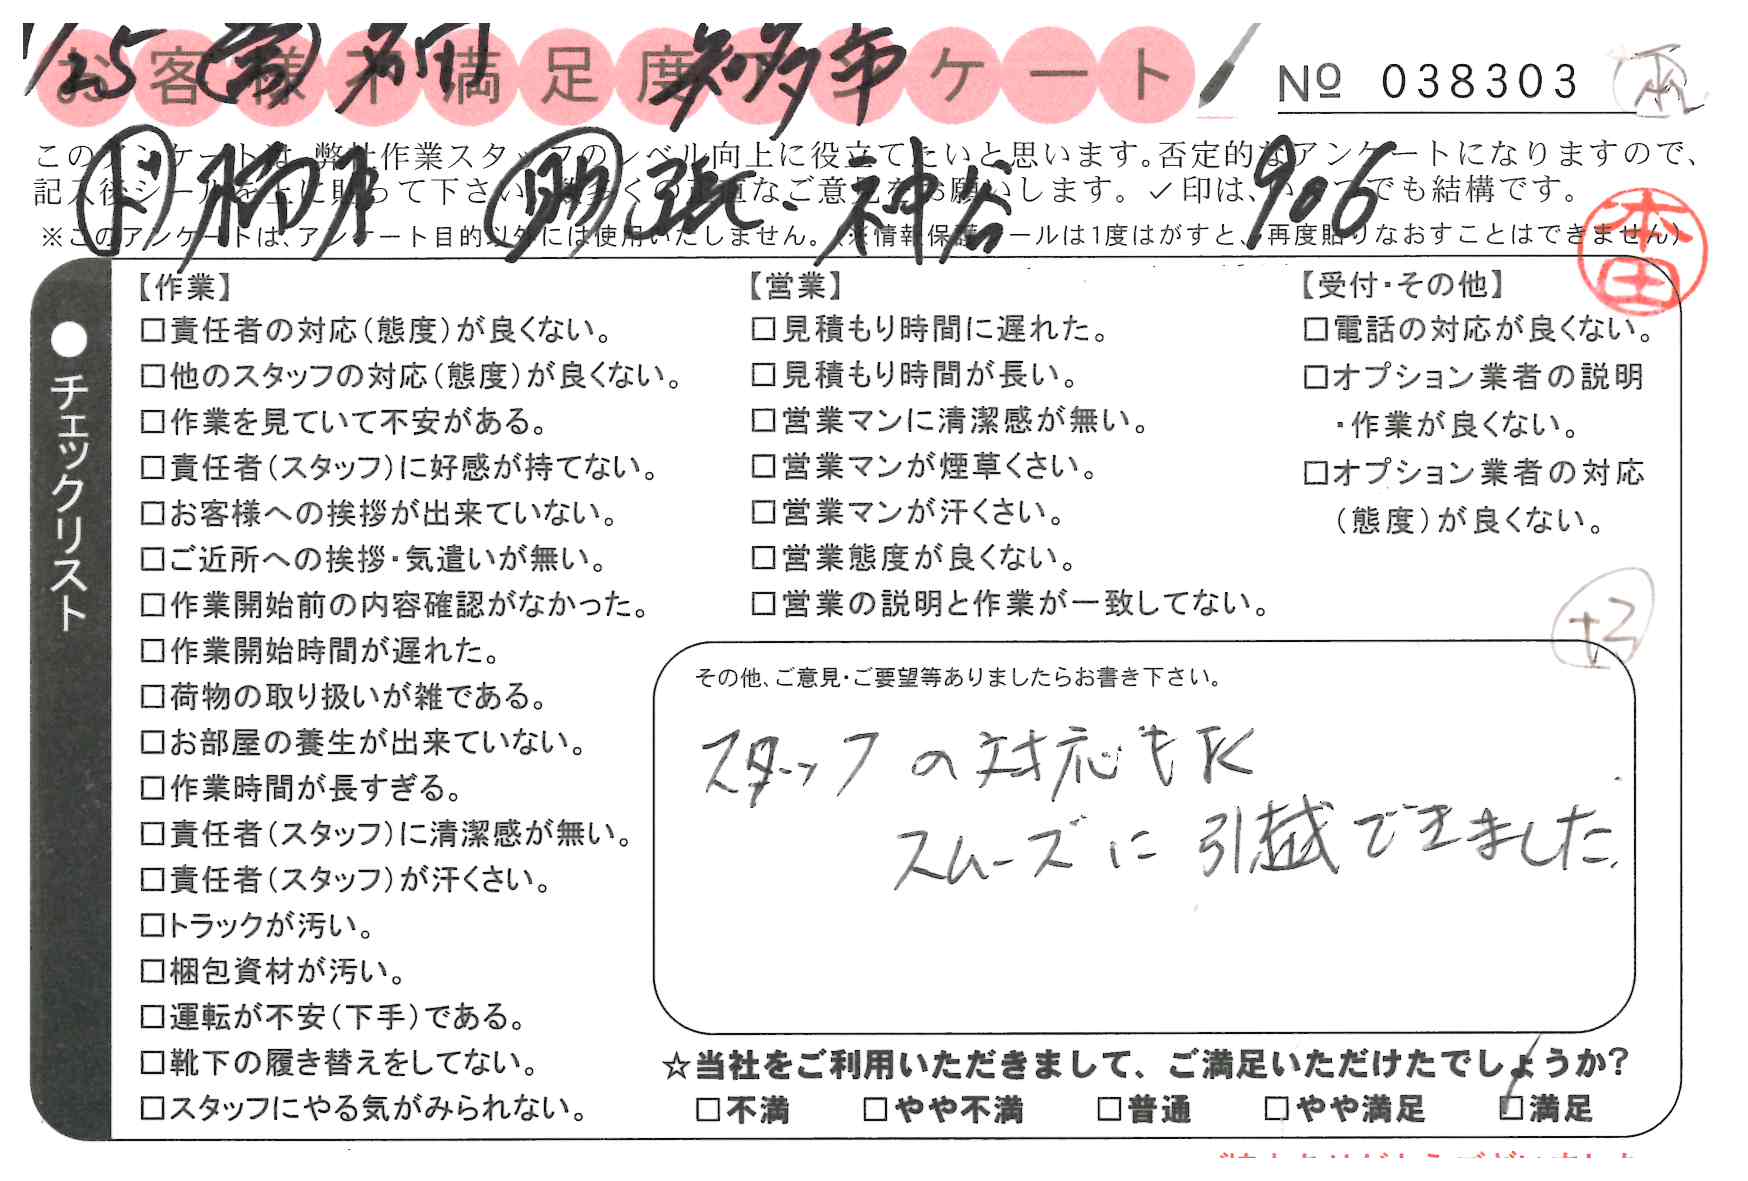 1/25
お客様不満足度アンケート
知多市
No 038303
このアンケートは、弊社作業スタッフのレベル向上に役立てたいと思います。否定的なアンケートになりますので、
記入後シールを上に貼って下さい。数多くの正直なご意見をお願いします。✓印は、いくつでも結構です。
神谷 906
※このアンケートは、アンケート目的以外には使用いたしません。(※情報保護シールは1度はがすと、再度貼りなおすことはできません)
本田
●チェックリスト
【作業】
□責任者の対応(態度)が良くない。
□他のスタッフの対応(態度)が良くない。
□作業を見ていて不安がある。
□責任者(スタッフ)に好感が持てない。
□お客様への挨拶が出来ていない。
□ご近所への挨拶・気遣いが無い。
□作業開始前の内容確認がなかった。
□作業開始時間が遅れた。
□荷物の取り扱いが雑である。
□お部屋の養生が出来ていない。
□作業時間が長すぎる。
□責任者(スタッフ)に清潔感が無い。
□責任者(スタッフ)が汗くさい。
□トラックが汚い。
□梱包資材が汚い。
□運転が不安(下手)である。
□靴下の履き替えをしてない。
□スタッフにやる気がみられない。
【営業】
□見積もり時間に遅れた。
□見積もり時間が長い。
□営業マンに清潔感が無い。
□営業マンが煙草くさい。
□営業マンが汗くさい。
□営業態度が良くない。
□営業の説明と作業が一致してない。
【受付・その他】
□電話の対応が良くない。
□オプション業者の説明
・作業が良くない。
□オプション業者の対応
(態度)が良くない。
その他、ご意見・ご要望等ありましたらお書き下さい。
スタッフの対応もよく
スムーズに引越できました。
☆当社をご利用いただきまして、ご満足いただけたでしょうか?
□不満 □やや不満 □普通 □やや満足 □満足